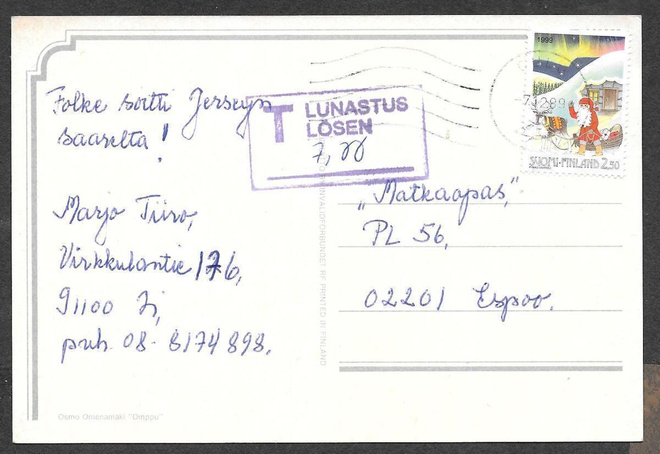 Folke soitti Jerseyn
saarelta!
Marjo Tiiro,
Virkkulantie 176,
91100 Ii,
puh. 08-8174 898.
T LUNASTUS
LÖSEN
7,00
1993
SUOMI-FINLAND 2,30
"Matkaopas",
PL 56,
02201 Espoo.
PRINTED IN FINLAND
Osmo Omenamäki "Omppu"